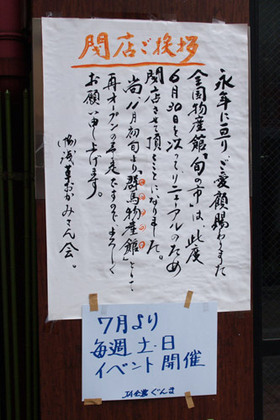 閉店ご挨拶
永年に亘りご愛顧賜わりました
全国物産館「旬の市」は、此度
6月30日を以ってリニューアルのため
閉店させて頂くことになりました。
尚11月初旬より、群馬物産館として
再オープンの予定ですのでよろしく
お願い申し上げます。
浅草おかみさん会。
7月より
毎週土・日
イベント開催
JA全農ぐんま